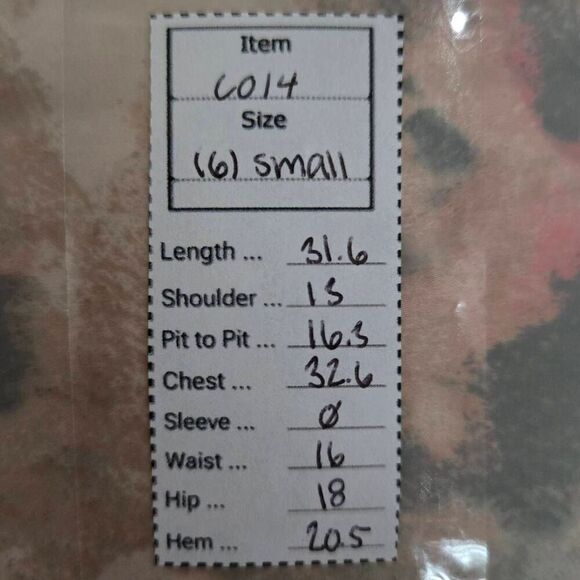 Item
6014
Size
(6) small
Length ... 31.6
Shoulder ... 13
Pit to Pit ... 16.3
Chest ... 32.6
Sleeve ... Ø
Waist ... 16
Hip ... 18
Hem ... 20.5